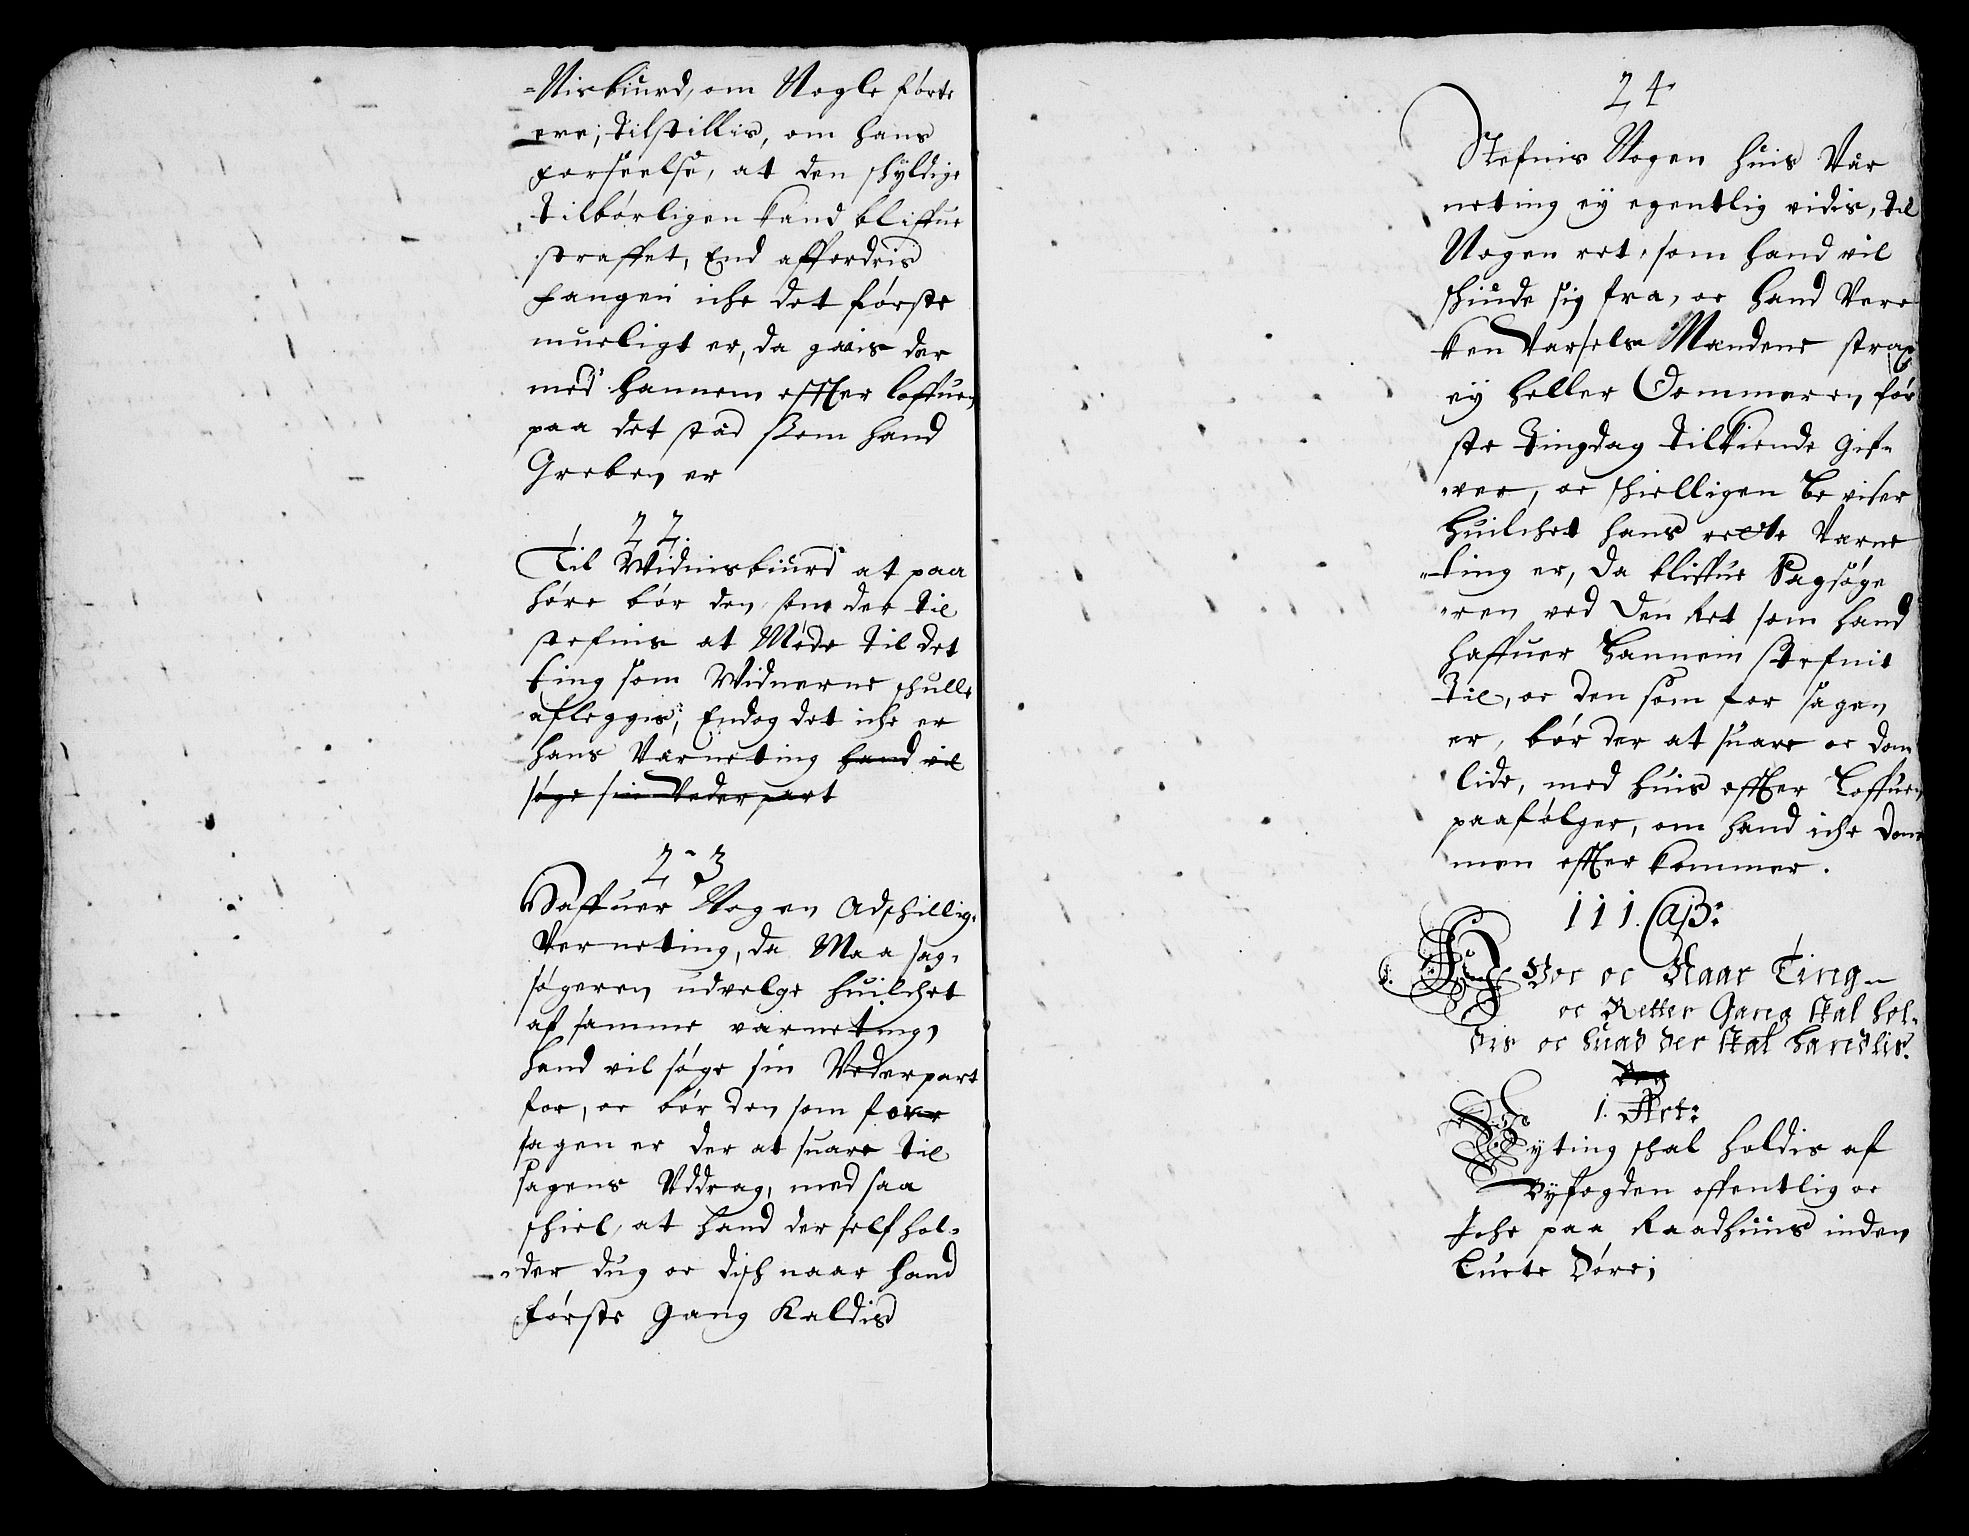 -Nisbiurd, om Nogle førte
ere, tilstillis, om hans
forseelse, at den schyldige
tilbørligen kand bliffue
straffet, End affordris
fangen iche det første
mueligt er, da gaais der
med hannem effter loffuen,
paa det stæd som hand
Greben er
22.
Til Widnisbiurd at paa
høre bør den som der til
stefnis at Møde til det
ting som Widnerne schulle
afleggis, Endog det iche er
hans Værneting hand vil
søge sin Vederpart
23
Haffuer Nogen Adschillige
Verneting, da Maa sag-
søgeren udvelge huilchet
af samme varneting,
hand vil søge sin Vederpart
for, oc bør den som for
sagen er der at suare til
sagens Uddrag, med saa
schiel, at hand der self hol-
der dug oc disch naar hand
første Gang Kaldis
24
Stefnis Nogen huis Vær
neting ey egentlig vidis, til
Nogen ret, som hand vil
schiude sig fra, oc hand Vere
ken Varsels Mændene strax
ey heller Dommeren, før
ste tingdag tilkiende gif-
ver, oc schielligen be viser
huilchet hans rette Værne
ting er, da bliffue Sagsøge
ren ved den Ret som hand
haffuer hannem Stefnit
til, oc den som for sagen
er, bør der at suare oc dom
lide, med huis effter Loffuen,
paafølger, om hand iche dom
men effter kommer.
111. Cap:
Hvor oc Naar Ting-
oc Retter Gang skal hol-
dis oc huad der skal handlis.
1. Art:
Byting schal holdis af
Byfogden offentlig oc
Iche paa Raadhuus inden
Lucte Døre;